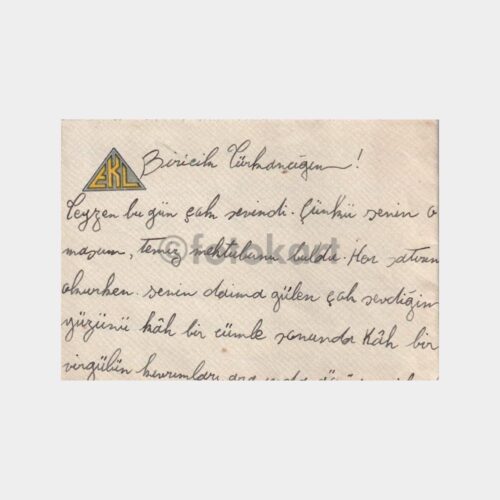 EKL
Biricik Türkancığım!
Teyzen bu gün çok sevindi. Çünkü senin o
masum, temiz mektubunu buldu. Her satırını
okurken. senin daima gülen çok sevdiğim
yüzünü kâh bir cümle sonunda kâh bir
virgülün kıvrımları
©fotokart